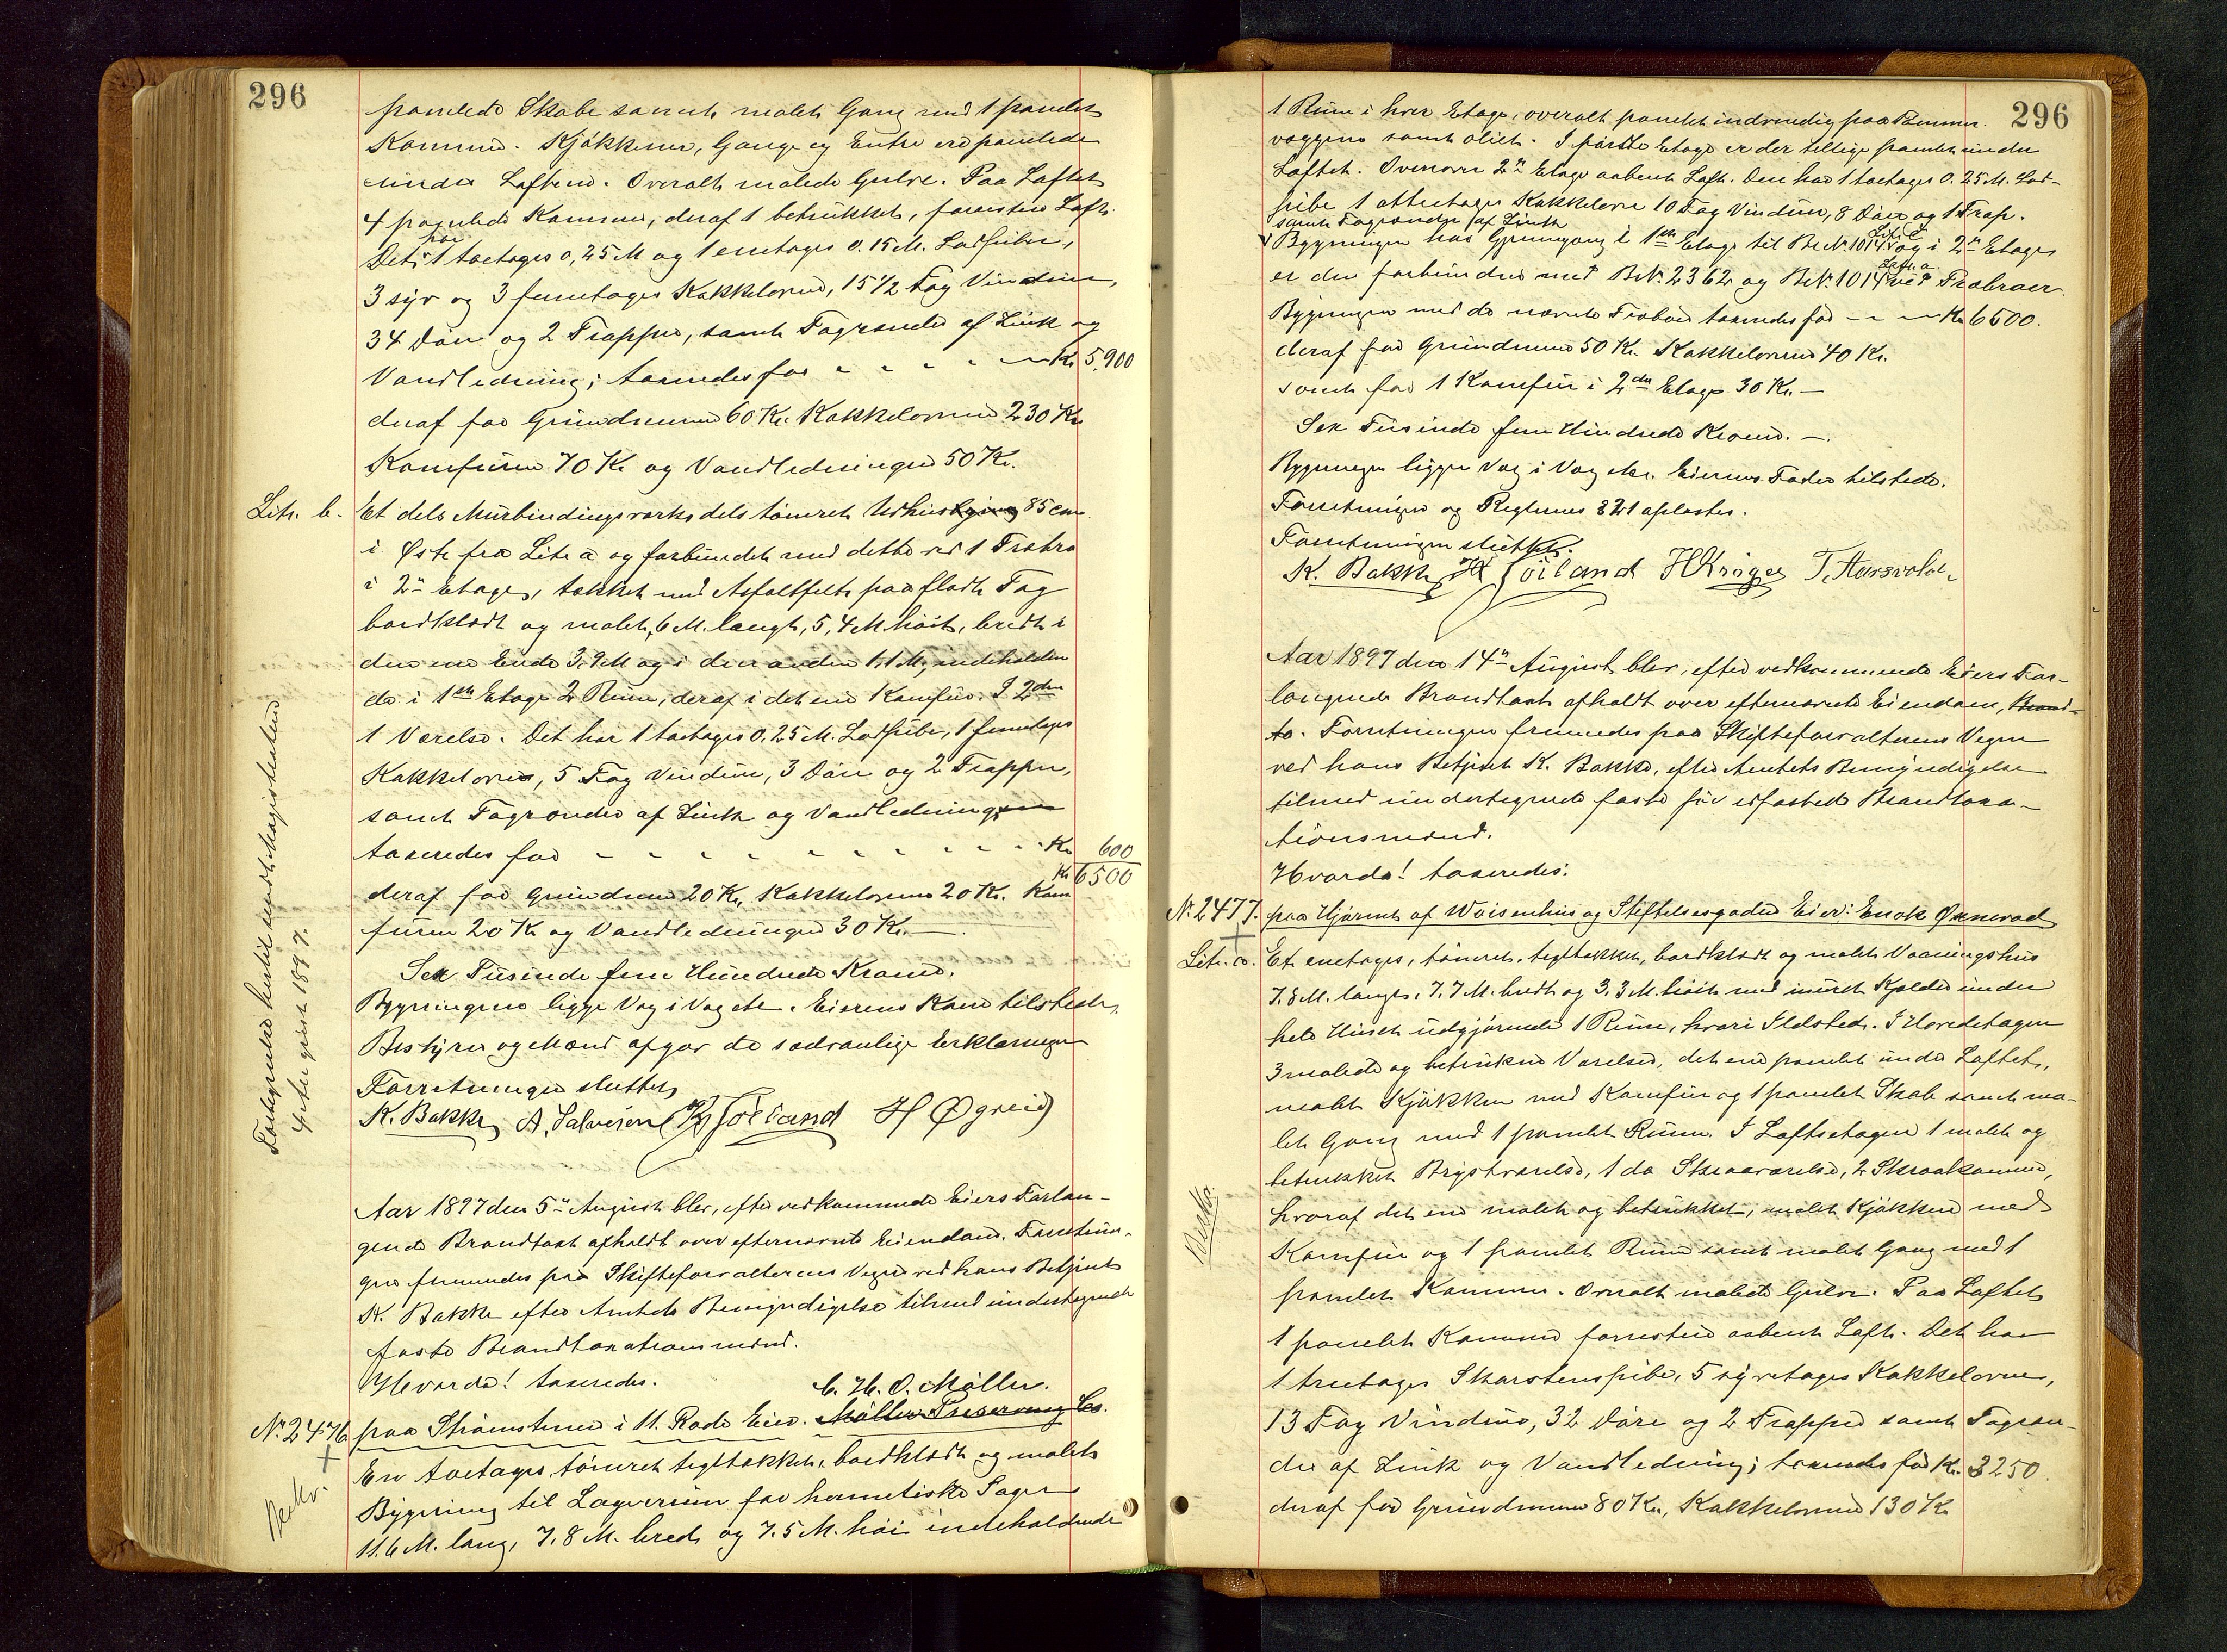 296
panelede Skabe samt malet Gang med 1 panelet
Kammer. Kjøkkener, Gange og Entre ere panelede
under Loftene. Overalt malede Gulve. Paa Loftet
4 panelede Kammer, deraf 1 betrukket, forresten Loft.
Det har 1 toetages 0,25 M og 1 enetages 0.15 M. Lodpiber,
3 syv og 3 femetages Kakkelovne, 15 1/2 Fag Vinduer,
34 Døre og 2 Trapper, samt Tagrender af Zink og
Vandledning; taxeredes for - - - - Kr 5,900
deraf for Grundmur 60 Kr. Kakkelovne 230 Kr
Komfurer 70 Kr og Vandledningen 50 Kr.
Litr. b. Et dels Murbindingsværks dels tømret Udhus 85 cm
i Øst fra Litr a og forbundet med dette ved 1 Træbro
i 2n Etage, tækket med Asfaltfilt paa fladt Tag
bordklædt og malet, 6 M. langt, 5,4 M. høit, bredt i
den ene Ende 3,9 M og i den anden 1,1 M, indeholden
de i 1ste Etage 2 Rum, deraf i det ene Komfur. I 2den
1 Værelse. Det har 1 toetages 0.25 M. Lodpibe, 1 femetages
Kakkelovn, 5 Fag Vinduer, 3 Døre og 2 Trapper,
samt Tagrender af Zink og Vandledningen
taxeredes for - - - - - - - - - Kr 600
Kr 6500
deraf for Grundmur 20 Kr, Kakkelovne 20 Kr. Kom
furer 20 Kr og Vandledningen 30 Kr. —
Sex Tusinde fem Hundrede Kroner.
Bygningerne ligge Væg i Væg etc. Eierens Kone tilstede.
Bestyrer og Mænd afgav de sædvanlige Erklæringer
Forretningen sluttet
K. Bakke A. Salvesen H Joiland H Øgreid
4de August 1897.
Aar 1897 den 5te August blev, efter vedkommende Eiers Forlan-
gende Brandtaxt afholdt over efternævnte Eiendom. Forretnin-
gen fremmedes paa Skifteforvalterens Vegne ved hans Betjent
K. Bakke efter Amtets Bemyndigelse tilmed undertegnede
faste Brandtaxationsmænd.
Hvorda! taxeredes.
C. H. O. Møller.
No 2476 paa Strømstenen i 11. Rode Eier. Møllers Preserving Co.
En toetages, tømret tegltækket, bordklædt og malet
Bekr.
Bygning til Lagerrum for hermetiske Sager
11.6 M. lang, 7.8 M. bred og 7.5 M. høi indeholdende
296
1 Rum i hver Etage, overalt panelet indvendig paa Tømmer-
væggene samt oliet. I første Etage er der tillige panelet under
Loftet. Ovenover 2n Etage aabent Loft. Den har 1 toetages 0.25 M. Lod-
pibe 1 Kakkelovn 10 Fag Vinduer, 8 Døre og 1 Trap.
samt Tagrender af Zink
Bygningen har Gjennemgang i 1ste Etage til Br No 1014 Litr. c og i 2n Etage
er den forbunden med Br No. 2362 og Br No. 1014 Litr. a ved Træbroer.
Bygningen med de nævnte Træbroer taxeredes for - - - Kr 6500.
deraf for Grundmur 50 Kr. Kakkelovne 40 Kr.
samt for 1 Komfur i 2den Etage 30 Kr. —
Sex Tusinde fem Hundrede Kroner. —
Bygningen ligger Væg i Væg etc. Eierens Fader tilstede.
Forretningen og Reglernes § 21 oplæstes.
Forretningen sluttet.
K. Bakke H Joiland H Krøger T. Aarsvold
Aar 1897 den 14n August blev, efter vedkommende Eiers For-
langende Brandtaxt afholdt over efternævnte Eiendom, Brand-
to. Forretningen fremmedes paa Skifteforvalterens Vegne
ved hans Betjent K. Bakke, efter Amtets Bemyndigelse
tilmed undertegnede faste før edfæstede Brandtaxa-
tionsmænd.
Hvorda! taxeredes:
No 2477. paa Hjørnet af Waisenhus og Stiftelsesgaden Eier: Enok Øxnevad
Litr. a. Et enetages, tømret, tegltækket, bordklædt og malet Vaaningshus
7.8 M. langt, 7.7 M. bredt og 3.3 M. høit med muret Kjelder under
hele Huset udgjørende 1 Rum, hvori Ildsted. I Hovedetagen
3 malede og betrukne Værelser, det ene panelet under Loftet,
malet Kjøkken med Komfur og 1 panelet Skab samt ma-
let Gang med 1 panelet Rum. I Loftsetagen 1 malet og
betrukket Brystværelse, 1 do Skraaværelse, 2 Skraakammer,
hvoraf det ene malet og betrukket, malet Kjøkken med
Komfur og 1 panelet Rum samt malet Gang med 1
panelet Kammer. Overalt malede Gulve. Paa Loftet
1 panelet Kammer forresten aabent Loft. Det har
1 treetages Skorstenspibe, 5 syvetages Kakkelovne,
13 Fag Vinduer, 32 Døre og 2 Trapper samt Tagren-
der af Zink og Vandledning; taxeredes for Kr. 3250.
deraf for Grundmur 80 Kr., Kakkelovne 130 Kr